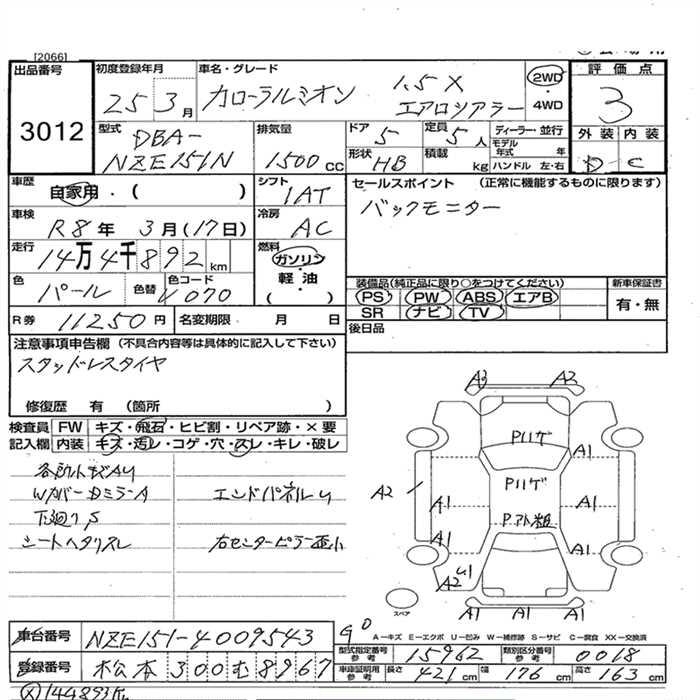 [2066]
出品番号
3012
初度登録年月
25 3月
車名・グレード
カローラルミオン
1.5X
エアロツアラー
2WD
・
4WD
評価点
3
外装 内装
D C
型式
DBA-
NZE151N
排気量
1500CC
ドア
5
定員
5人
形状
HB
積載
kg
ディーラー・並行
モデル
年式 年
ハンドル 左・右
車歴
自家用・( )
シフト
IAT
セールスポイント (正常に機能するものに限ります)
バックモニター
車検
R8年 3月(17日)
冷房
AC
走行
14万4千892km
燃料
ガソリン
・
軽油
( )
色
パール
色替
色コード
070
装備品(純正品に限り○をつけてください)
PS PW ABS エアB
SR ナビ TV
新車保証書
有・無
R券 11250円
名変期限 月 日
後日品
注意事項申告欄 (不具合内容等は具体的に記入して下さい)
スタッドレスタイヤ
修復歴 有 (箇所 )
検査員 FW キズ・飛石・ヒビ割・リペア跡・×要
記入欄 内装 キズ・汚レ・コゲ・穴・スレ・キレ・破レ
WカバーDミラーA
エンドパネルU
下廻りS
シートヘタリスレ
右センターピラー歪小
A3 A2
Pハゲ
A1
Pハゲ
A2
A1 A1
A1 A1
A2 U1
A1 A1 A1
スペア
A-キズ E-エクボ U-凹み W-補修跡 S-サビ C-腐食 XX-交換済
車台番号 NZE151-4009543
型式指定番号
参考
15962
類別区分番号
参考
0018
登録番号 松本 300む8967
車庫証明用
参考
長さ 421cm 幅 176cm 高さ 163cm
144893km